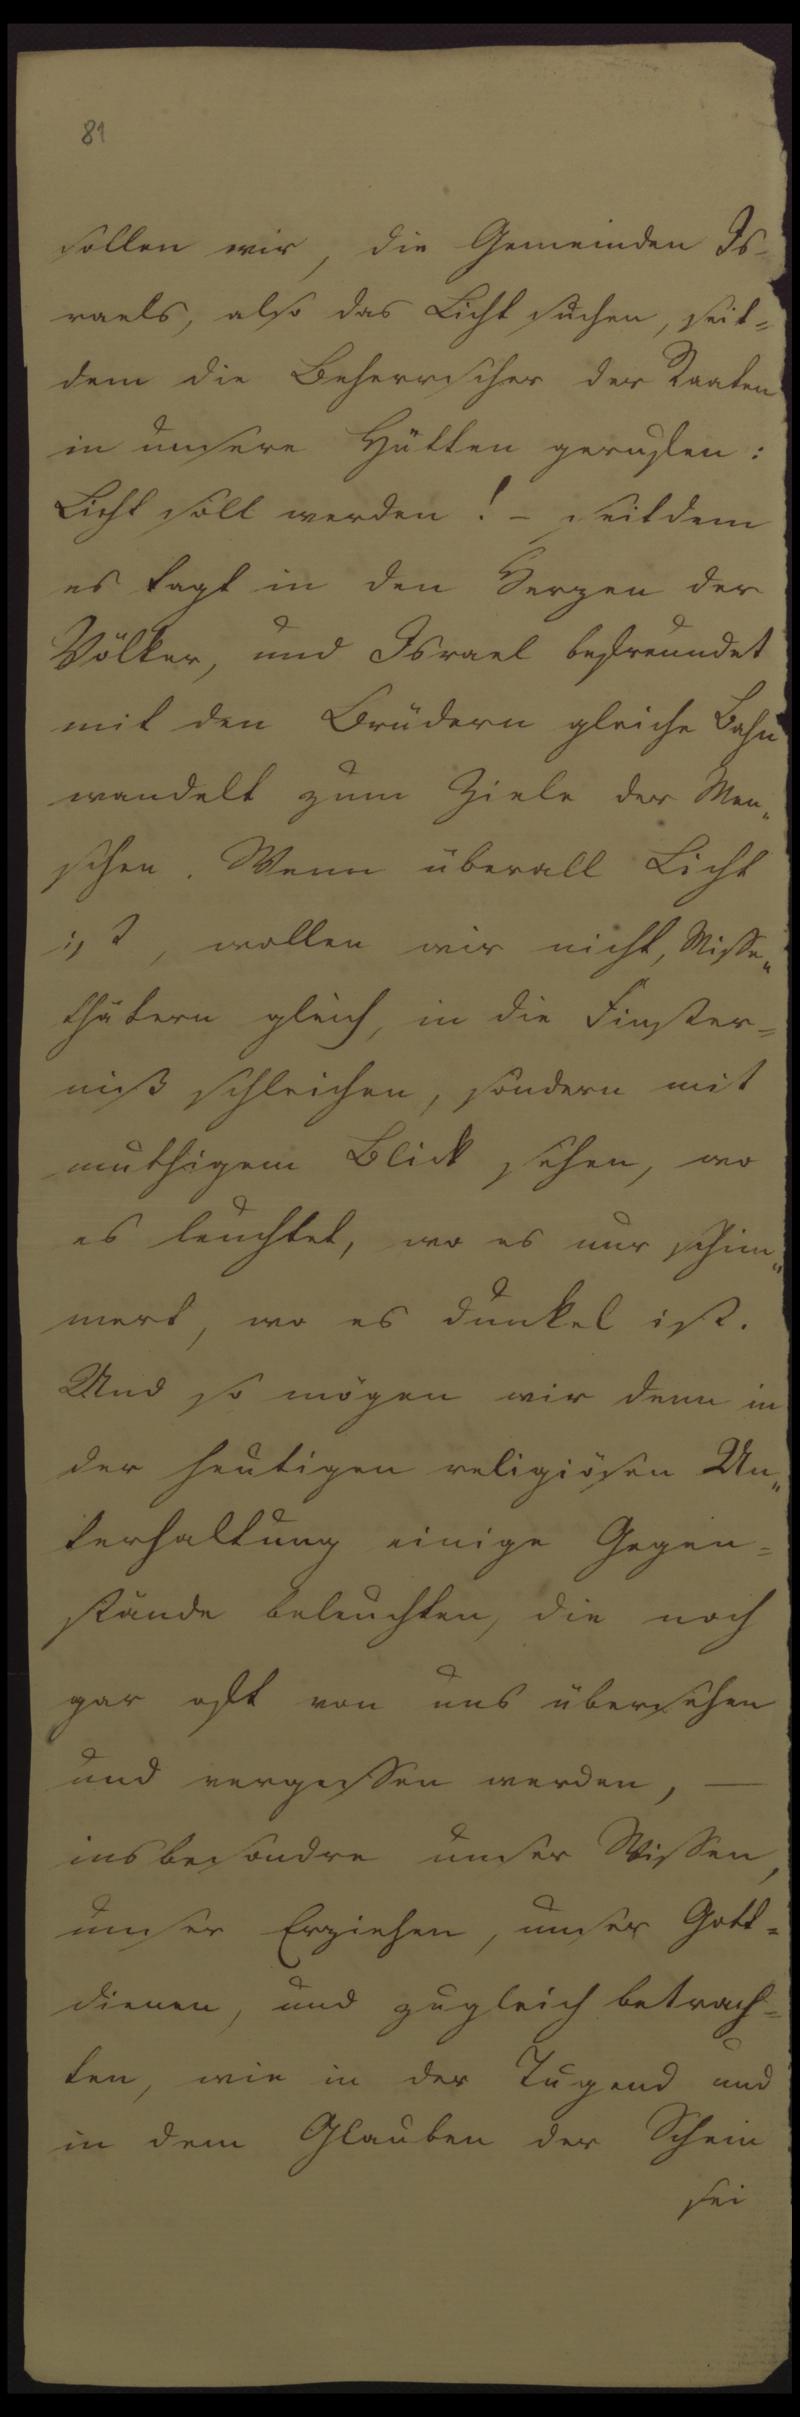 81
sollen wir, die Gemeinden Is-
raels, also das Licht suchen, seit=
dem die Beherrscher der Staaten
in unsere Hütten gerufen:
Licht soll werden! – seitdem
es tagt in den Herzen der
Völker, und Israel befreundet
mit den Brüdern gleiche Bahn
wandelt zum Ziele der Men„
schen. Wenn überall Licht
ist, wollen wir nicht, Misse„
thätern gleich, in die Finster=
niß schleichen, sondern mit
muthigem Blick sehen, wo
es leuchtet, wo es nur schim„
mert, wo es dunkel ist.
Und so mögen wir denn in
der heutigen religiösen Un„
terhaltung einige Gegen=
stände beleuchten, die noch
gar oft von uns übersehen
und vergessen werden, —
insbesondre unser Wissen,
unser Erziehen, unser Gott=
dienen, und zugleich betrach=
ten, wie in der Tugend und
in dem Glauben der Schein
sei